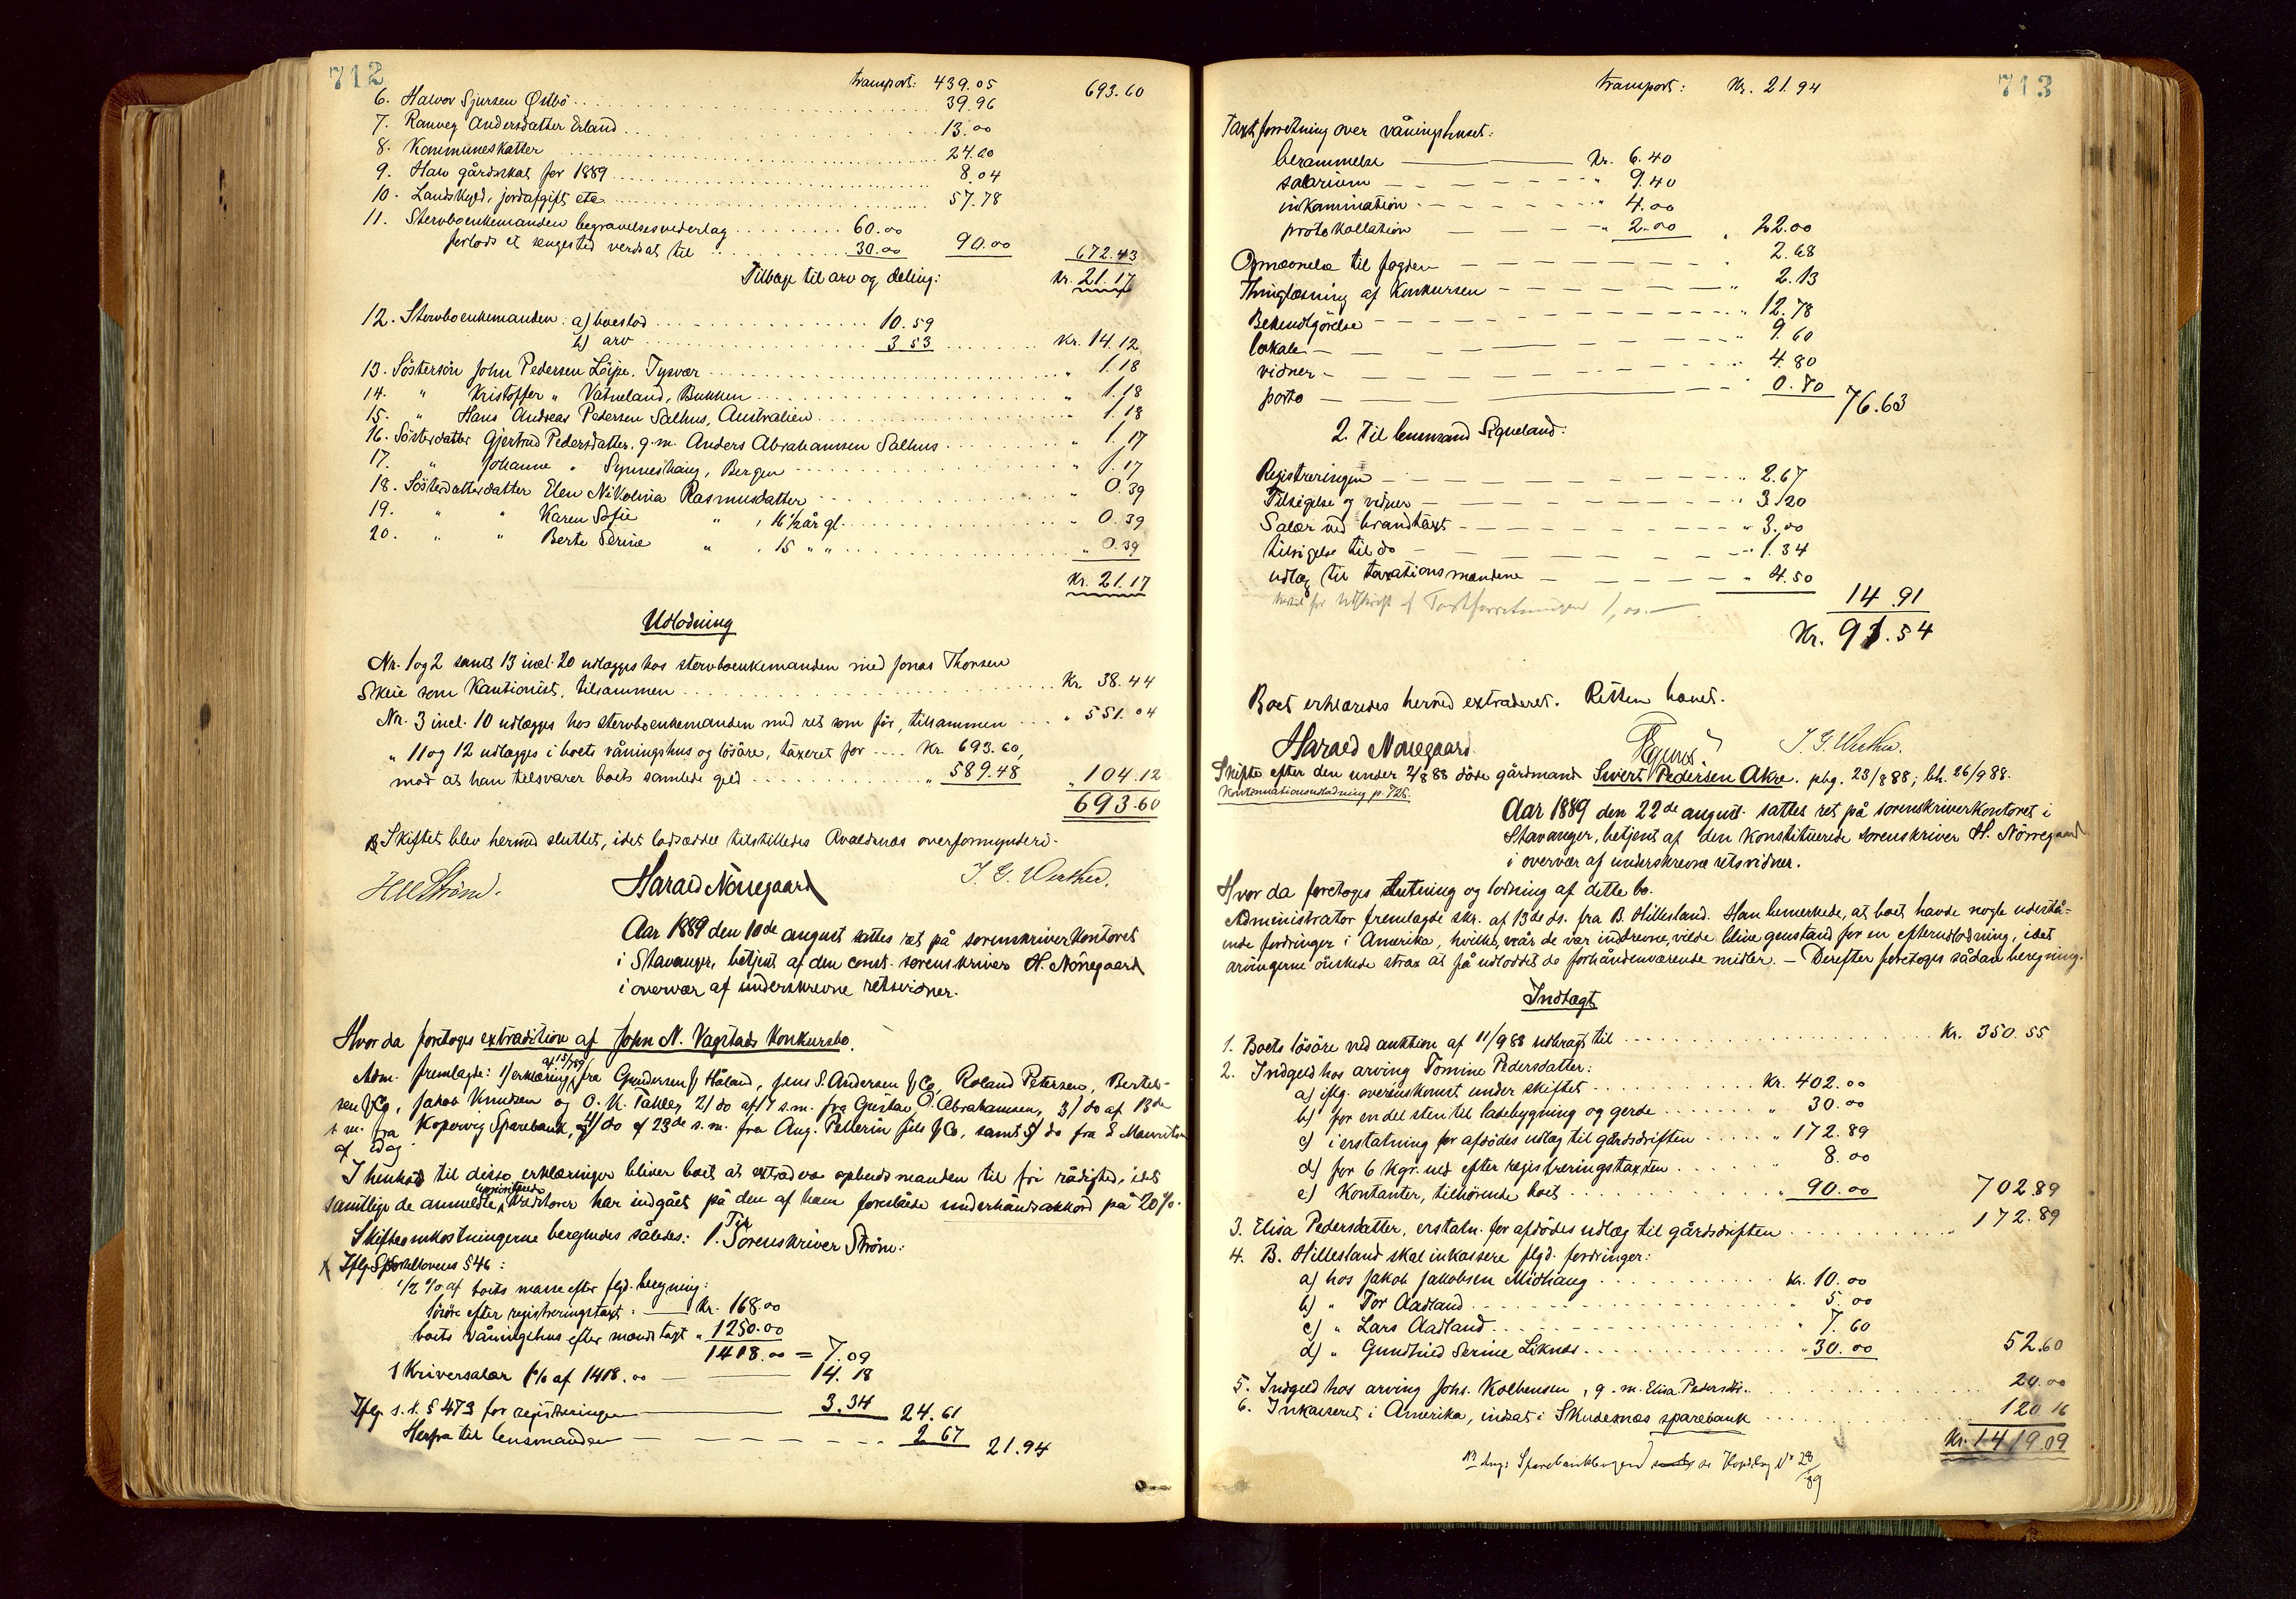 712
transport: 439.05 693.60
6. Halvor Sjursen Østbö 39.96
7. Ranveg Andersdatter Erland 13.00
8. Kommuneskatter 24.60
9. Halv gårdskat for 1889 8.04
10. Landskyld, jordafgift etc 57.78
11. Stervboenkemanden begravelsesvederlag 60.00
forlods et sengested verdsat til 30.00 90.00 672.43
Tilbage til arv og deling: Kr. 21.17
12. Stervboenkemanden: a) boeslod 10.59
b) arv 3.53 Kr. 14.12
13. Söstersön John Pedersen Löipe, Tysvær " 1.18
14. " Kristoffer " Vatneland, Bukken " 1.18
15. " Hans Andreas Pedersen Salhus, Australien " 1.18
16. Sösterdatter Gjertrud Pedersdatter, g.m. Anders Abrahamsen Salhus " 1.17
17. " Johanne " Synneshaug, Bergen " 1.17
18. Sösterdatterdatter Elen Nikolina Rasmusdatter " 0.39
19. " " Karen Sofie " , 16 1/2 år gl. " 0.39
20. " " Berte Serine " , 15 " " " 0.39
Kr. 21.17
Udlodning
Nr. 1 og 2 samt 13 incl. 20 udlægges hos stervboenkemanden med Jonas Thorsen
Skeie som Kautionist, tilsammen Kr. 38.44
Nr. 3 incl. 10 udlægges hos stervboenkemanden med ret som för, tilsammen " 551.04
" 11 og 12 udlægges i boets våningshus og lösöre, taxeret for Kr. 693.60,
mod at han tilsvarer boets samlede gjeld " 589.48 " 104.12
693.60
Skiftet blev hermed sluttet, idet lodseddel tilstilledes Avaldsnes overformynderi.
Harald Nörregaard
Aar 1889 den 10de august sattes ret på sorenskriverkontoret
i Stavanger, betjent af den const. sorenskriver H. Nörregaard
i overvær af underskrevne retsvidner.
Hvor da foretoges extradition af John N. Vagstads Konkursbo.
Adm. fremlagde: 1) erklæring af 15/7 89 fra Gundersen & Håland, Jens S. Andersen & Co, Roland Petersen, Bertel-
sen & Co, Jakob Knudsen og O. K. Takle, 2) do af 17 s.m. fra Gustav O. Abrahamsen, 3) do af 18de
s.m. fra Kopervig Sparebank, 4) do af 23de s.m. fra Aug. Pellerin fils & Co, samt 5) do fra S Mauritsen
af idag
I henhold til disse erklæringer bliver boet at extradere opbudsmanden til fri rådighed, idet
samtlige de anmeldte uprioriterede kreditorer har indgået på den af ham foreslåede underhåndsakkord på 20%.
Skifteomkostningerne beregnedes således: 1. Til Sorenskriver Ström:
Iflg Sportelloven § 46:
1/2 % af boets masse efter flgd. beregning:
lösöre efter registreringstaxt: Kr. 168.00
boets våningshus efter mandstaxt " 1250.00
1418.00 = 7.09
Skriversalær 1% af 1418.00 14.18
Iflg. s.l. § 473 for registreringen 3.34 24.61
Herfra til lensmanden 2.67 21.94
713
transport: Kr. 21.94
Taxtforretning over våningshuset:
berammelse Kr. 6.40
salarium " 9.40
inkamination " 4.00
protokollation " 2.00 " 22.00
Opnævnelse til fogden " 2.68
Thinglæsning af Konkursen " 2.13
Bekjendtgörelse " 12.78
lokale " 9.60
vidner " 4.80
porto " 0.80 76.63
2. Til lensmand Siqueland:
Registreringen " 2.67
Tilsigelse og vidner " 3.20
Salær ved brandtaxt " 3.00
tilsigelse til do " 1.34
udlæg til taxationsmændene " 4.50
for Udskrift af Taxtforretningen 1,00.
14.91
Kr. 91.54
Boet erklæredes hermed extraderet. Retten hævet.
Harald Nörregaard
Skifte efter den under 2/8 88 döde gårdmand Sivert Pedersen Akre. pbg. 23/8 88; bh. 26/9 88.
Kontinuationsudlodning p. 725.
Aar 1889 den 22de august sattes ret på sorenskriverkontoret i
Stavanger, betjent af den Konstituerede sorenskriver H. Nörregaard
i overvær af underskrevne retsvidner.
Hvor da foretoges slutning og lodning af dette bo.
Administrator fremlagde skr. af 13de ds. fra B. Hillesland. Han bemerkede, at boet havde nogle udestå-
ende fordringer i Amerika, hvilke, når de var inddrevne, vilde blive genstand for en efterudlodning, idet
arvingerne önskede strax at få udloddet de forhåndenværende midler. – Derefter foretoges sådan beregning.
Indtægt
1. Boets lösöre ved auktion af 11/9 88 udbragt til Kr. 350.55
2. Indgeld hos arving Tomine Pedersdatter:
a) iflg. overenskomst under skiftet Kr. 402.00
b) for en del sten til ladebygning og gerde " 30.00
c) i erstatning for afdödes udlæg til gårdsdriften " 172.89
d) for 6 Kgr. uld efter registreringstaxten " 8.00
e) Kontanter, tilhörende boet " 90.00 702.89
3. Elisa Pedersdatter, erstatn. for afdödes udlæg til gårdsdriften " 172.89
4. B. Hillesland skal inkassere flgd. fordringer:
a) hos Jakob Jakobsen Midhaug Kr. 10.00
b) " Tor Aadland " 5.00
c) " Lars Aadland " 7.60
d) " Gundhild Serine Liknes " 30.00 52.60
5. Indgeld hos arving Johs. Kolbensen, g.m. Elisa Pedersdtr. 20.00
6. Inkasseret i Amerika, indsat i Skudenæs sparebank 120.16
Kr. 1419.09